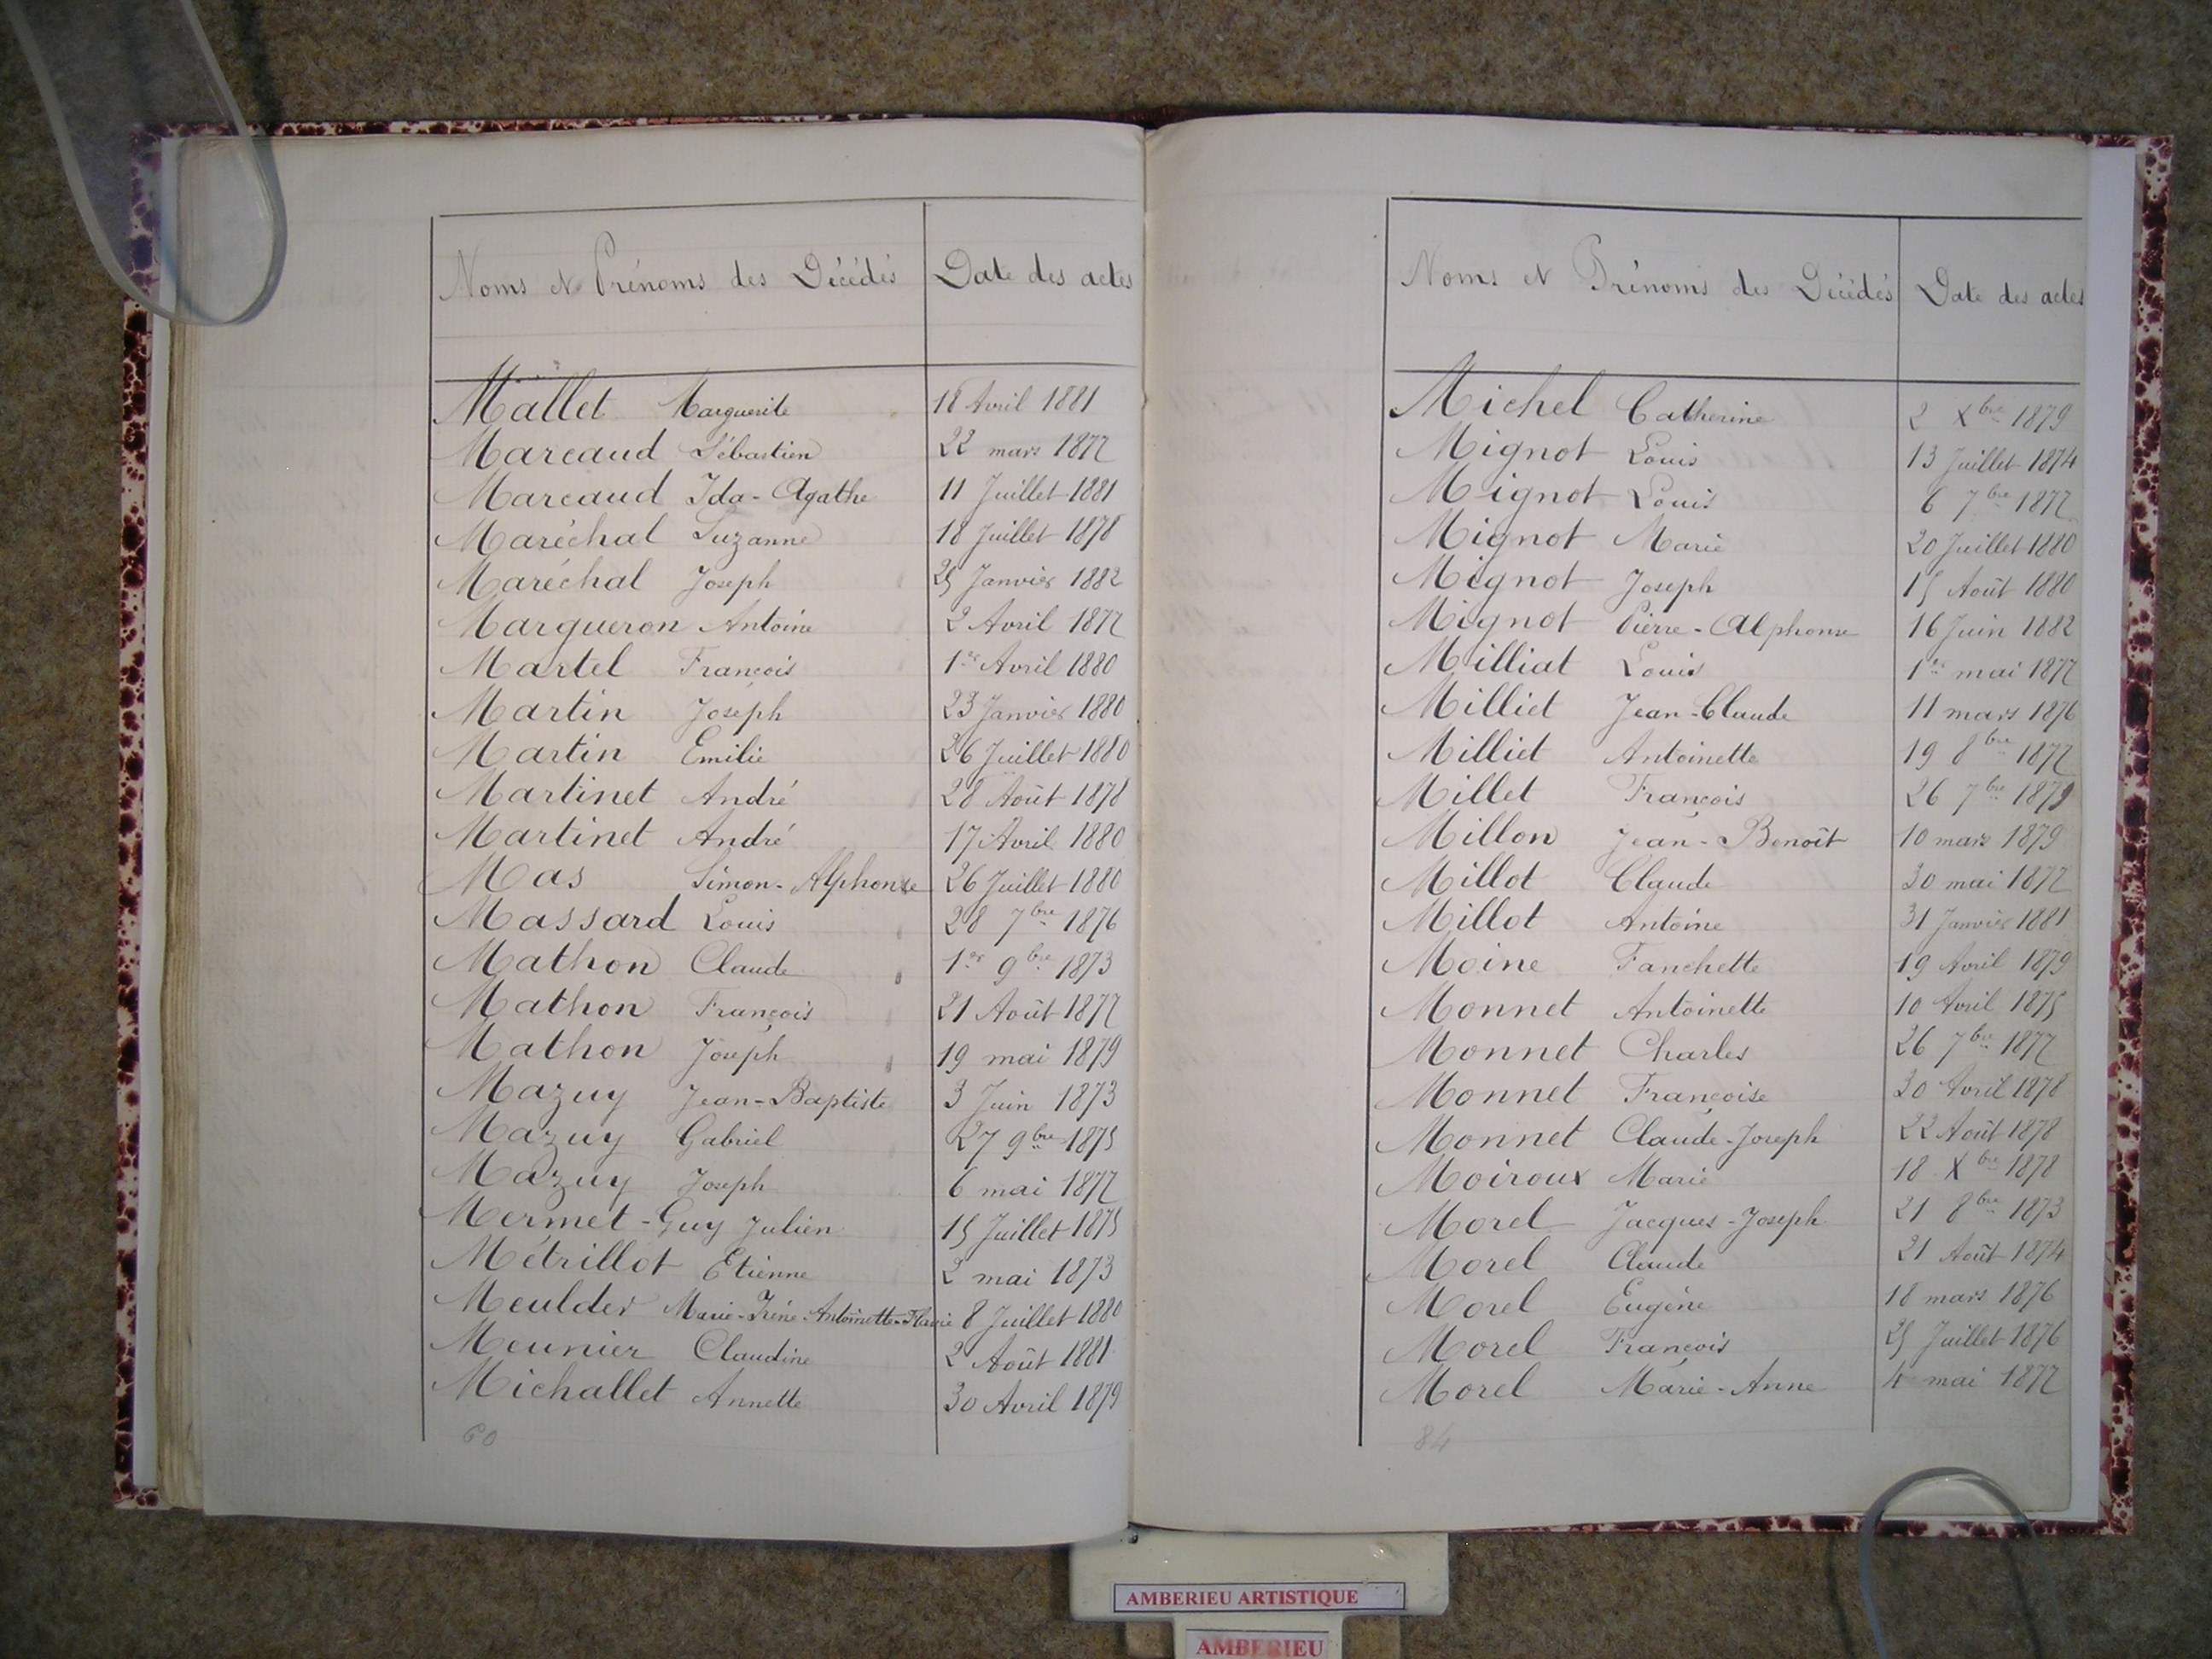 Noms et Prénoms des Décédés Date des actes
Mallet Marguerite 18 Avril 1881
Marcaud Sébastien 22 mars 1877
Marcaud Ida-Agathe 11 Juillet 1881
Maréchal Suzanne 18 Juillet 1878
Maréchal Joseph 25 Janvier 1882
Margueron Antoine 2 Avril 1877
Martel François 1er Avril 1880
Martin Joseph 23 Janvier 1880
Martin Emilie 26 Juillet 1880
Martinet André 28 Août 1878
Martinet André 17 Avril 1880
Mas Simon-Alphonse 26 Juillet 1880
Massard Louis 28 7bre 1876
Mathon Claude 1er 9bre 1873
Mathon François 21 Août 1877
Mathon Joseph 19 mai 1879
Mazuy Jean-Baptiste 3 Juin 1873
Mazuy Gabriel 27 9bre 1875
Mazuy Joseph 6 mai 1877
Mermet-Guy Julien 15 Juillet 1875
Métrillot Etienne 2 mai 1873
Meulder Marie-Irène-Antoinette-Flavie 8 Juillet 1880
Meunier Claudine 2 Août 1881
Michallet Annette 30 Avril 1879
60
Noms et Prénoms des Décédés Date des actes
Michel Catherine 2 Xbre 1879
Mignot Louis 13 Juillet 1874
Mignot Louis 6 7bre 1877
Mignot Marie 20 Juillet 1880
Mignot Joseph 15 Août 1880
Mignot Pierre-Alphonse 16 Juin 1882
Milliat Louis 1er mai 1877
Milliet Jean-Claude 11 mars 1876
Milliet Antoinette 19 8bre 1877
Millet François 26 7bre 1879
Millon Jean-Benoît 10 mars 1879
Millot Claude 30 mai 1877
Millot Antoine 31 Janvier 1881
Moine Fanchette 19 Avril 1879
Monnet Antoinette 10 Avril 1875
Monnet Charles 26 7bre 1877
Monnet Françoise 30 Avril 1878
Monnet Claude-Joseph 22 Août 1878
Moiroux Marie 18 Xbre 1878
Morel Jacques-Joseph 21 8bre 1873
Morel Claude 21 Août 1874
Morel Eugène 18 mars 1876
Morel François 25 Juillet 1876
Morel Marie-Anne 4 mai 1877
84
AMBERIEU ARTISTIQUE
AMBERIEU